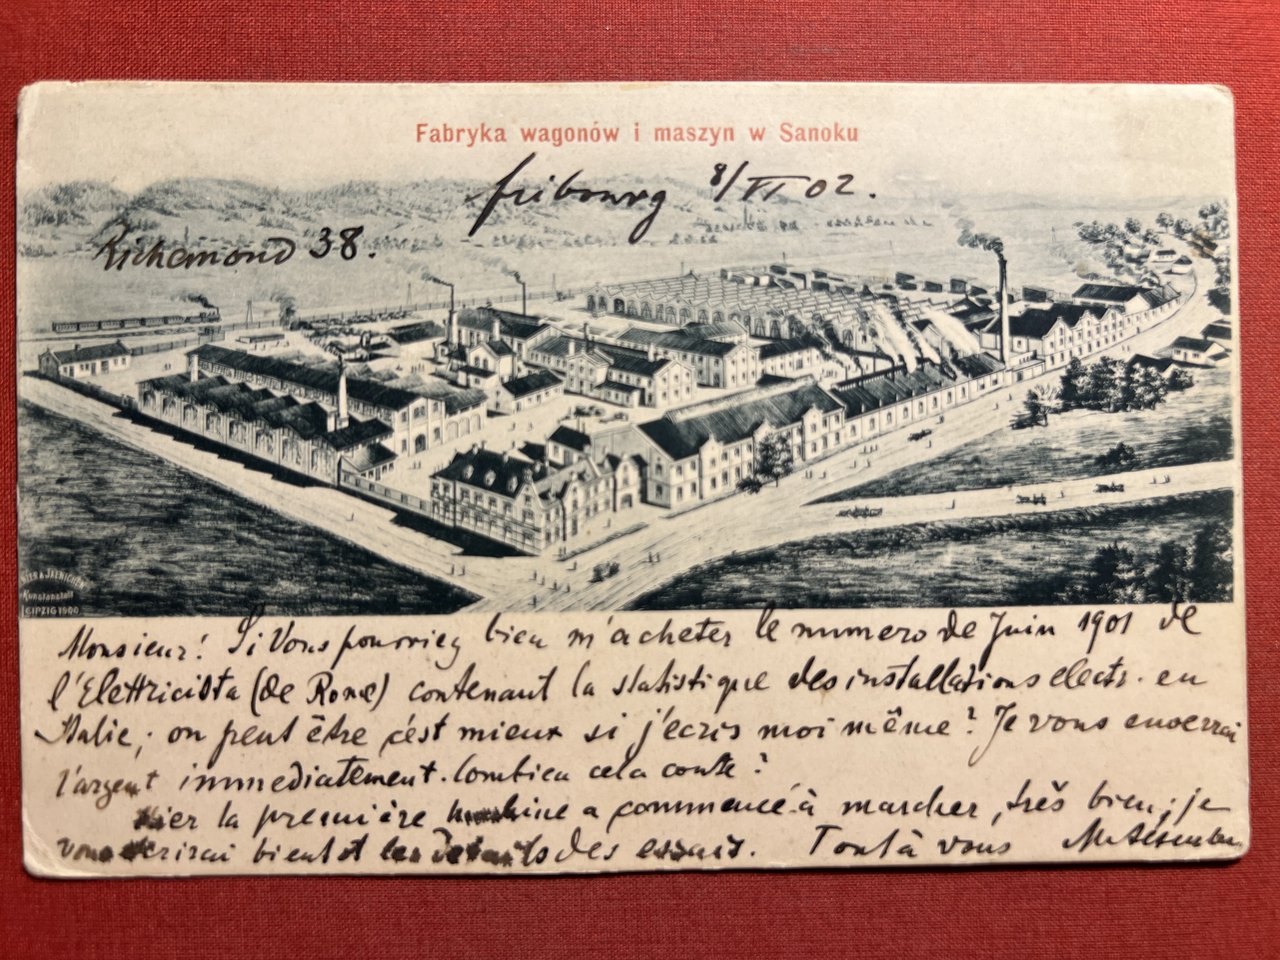 Fabryka wagonów i maszyn w Sanoku
fribourg 8/VI 02.
Richemond 38.
& JAENICHEN
Kunstanstalt
LEIPZIG 1900
Monsieur! Si Vous pourrieg bien m'acheter le numero de Juin 1901 de
l'Elettricista (de Rome) contenant la statistique des installations electr. en
Italie; on peut être c'est mieux si j'écris moi même? Je vous enverrai
l'argent immediatement. Combien cela conte?
Hier la première a commencé à marcher, très bien; je
vous bientot des essais. Tout à vous